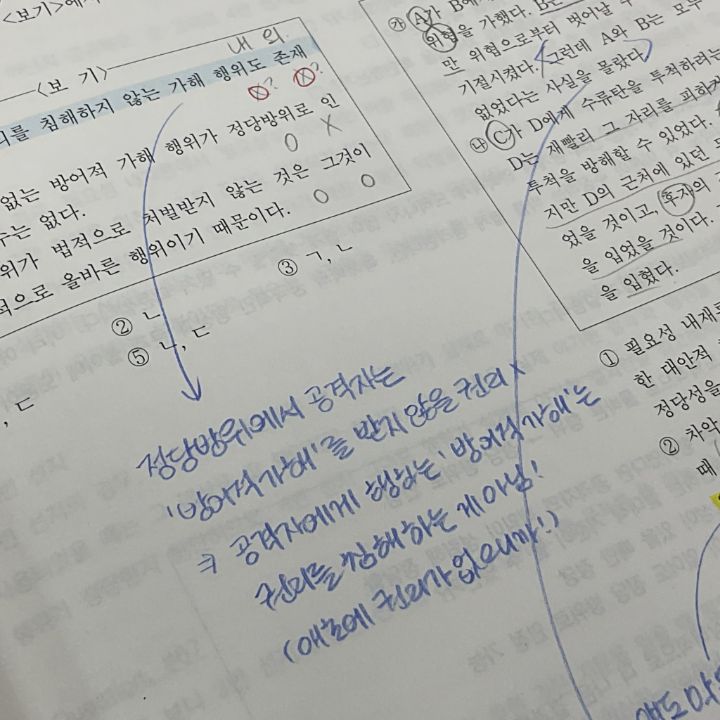 〈보기〉에
내 외
〈보 기〉
를 침해하지 않는 가해 행위도 존재
없는 방어적 가해 행위가 정당방위로 인
수는 없다.
위가 법적으로 처벌받지 않는 것은 그것이
적으로 올바른 행위이기 때문이다.
③ ㄱ, ㄴ
② ㄴ
⑤ ㄴ, ㄷ
, ㄷ
정당방위에서 공격자는
'방어적가해'를 받지않을 권리 x
⇒ 공격자에게 행하는 '방어적가해'는
권리를 '침해하는 게 아님!
(애초에 권리가 없으니까!)
㉮ A가 B에
위협을 가했다. B는
만 위협으로부터 벗어날 수
기절시켰다. 그런데 A와 B는 모두
없었다는 사실을 몰랐다.
㉯ C가 D에게 수류탄을 투척하려는
D는 재빨리 그 자리를 피하
투척을 방해할 수 있었다.
지만 D의 근처에 있던
었을 것이고, 후자의
을 입었을 것이다.
을 입혔다.
① 필요성 내재
한 대안적
정당성을
② 차악
때